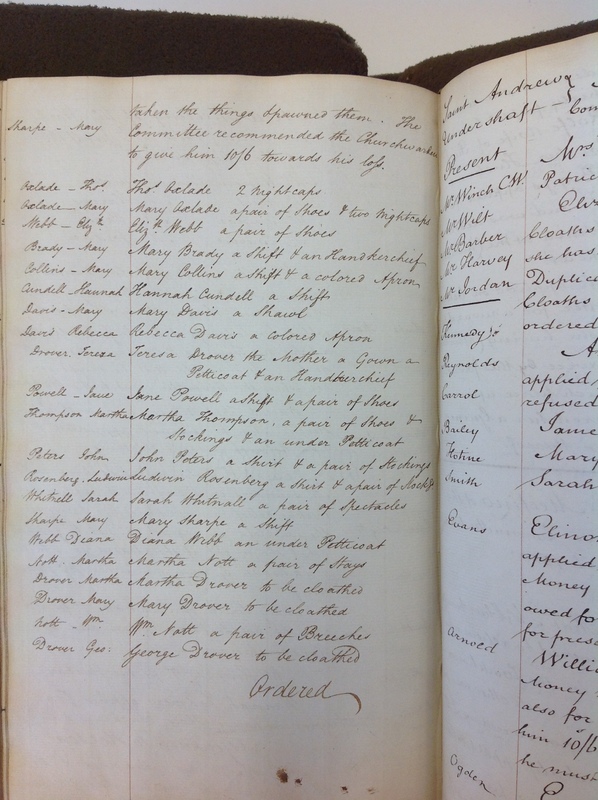 taken the things Spawned them. The
Sharpe - Mary Committee recommended the Churchwardens
to give him 10/6 towards his loss.
Oxlade - Thos. Thos. Oxlade 2 nightcaps
Oxlade - Mary Mary Oxlade a pair of Shoes & two nightcaps
Webb - Elizth Elizth Webb a pair of Shoes
Brady - Mary Mary Brady a Shift & an Handkerchief
Collins - Mary Mary Collins a Shift & a colored Apron
Cundell Hannah Hannah Cundell a Shift
Davis - Mary Mary Davis a Shawl
Davis Rebecca Rebecca Davis a colored Apron
Drover. Teresa Teresa Drover the Mother a Gown a
Petticoat & an Handkerchief
Powell - Jane Jane Powell a Shift & a pair of Shoes
Thompson Martha Martha Thompson, a pair of Shoes &
Stockings & an under Petticoat
Peters John John Peters a Shirt & a pair of Stockings
Rosenberg - Ludwin Ludwin Rosenberg a Shirt & a pair of Stocks
Whitnell Sarah Sarah Whitnall a pair of Spectacles
Sharpe Mary Mary Sharpe a Shift
Webb Diana Diana Webb an under Petticoat
Nott. Martha Martha Nott a pair of Stays
Drover Martha Martha Drover to be cloathed
Drover Mary Mary Drover to be cloathed
Nott - Wm. Wm. Nott a pair of Breeches
Drover Geo: George Drover to be cloathed
Ordered
Saint Andrew
Undershaft
Com
Present Mrs
Mr Winch C.W. Patric
Mr Welt
Mr Barber Cloaths
Mr Harvey she has
Mr Jordan Duplic
Cloaths
Kennedy ordered
A
Reynolds applied
Carrol refused
Bailey Jame
Hohne Mary
Smith Sarah
Evans Elino
applied
Money
owed fo
for prese
Arnold Willi
Money
also for
him 10/6
he must
Ogden E